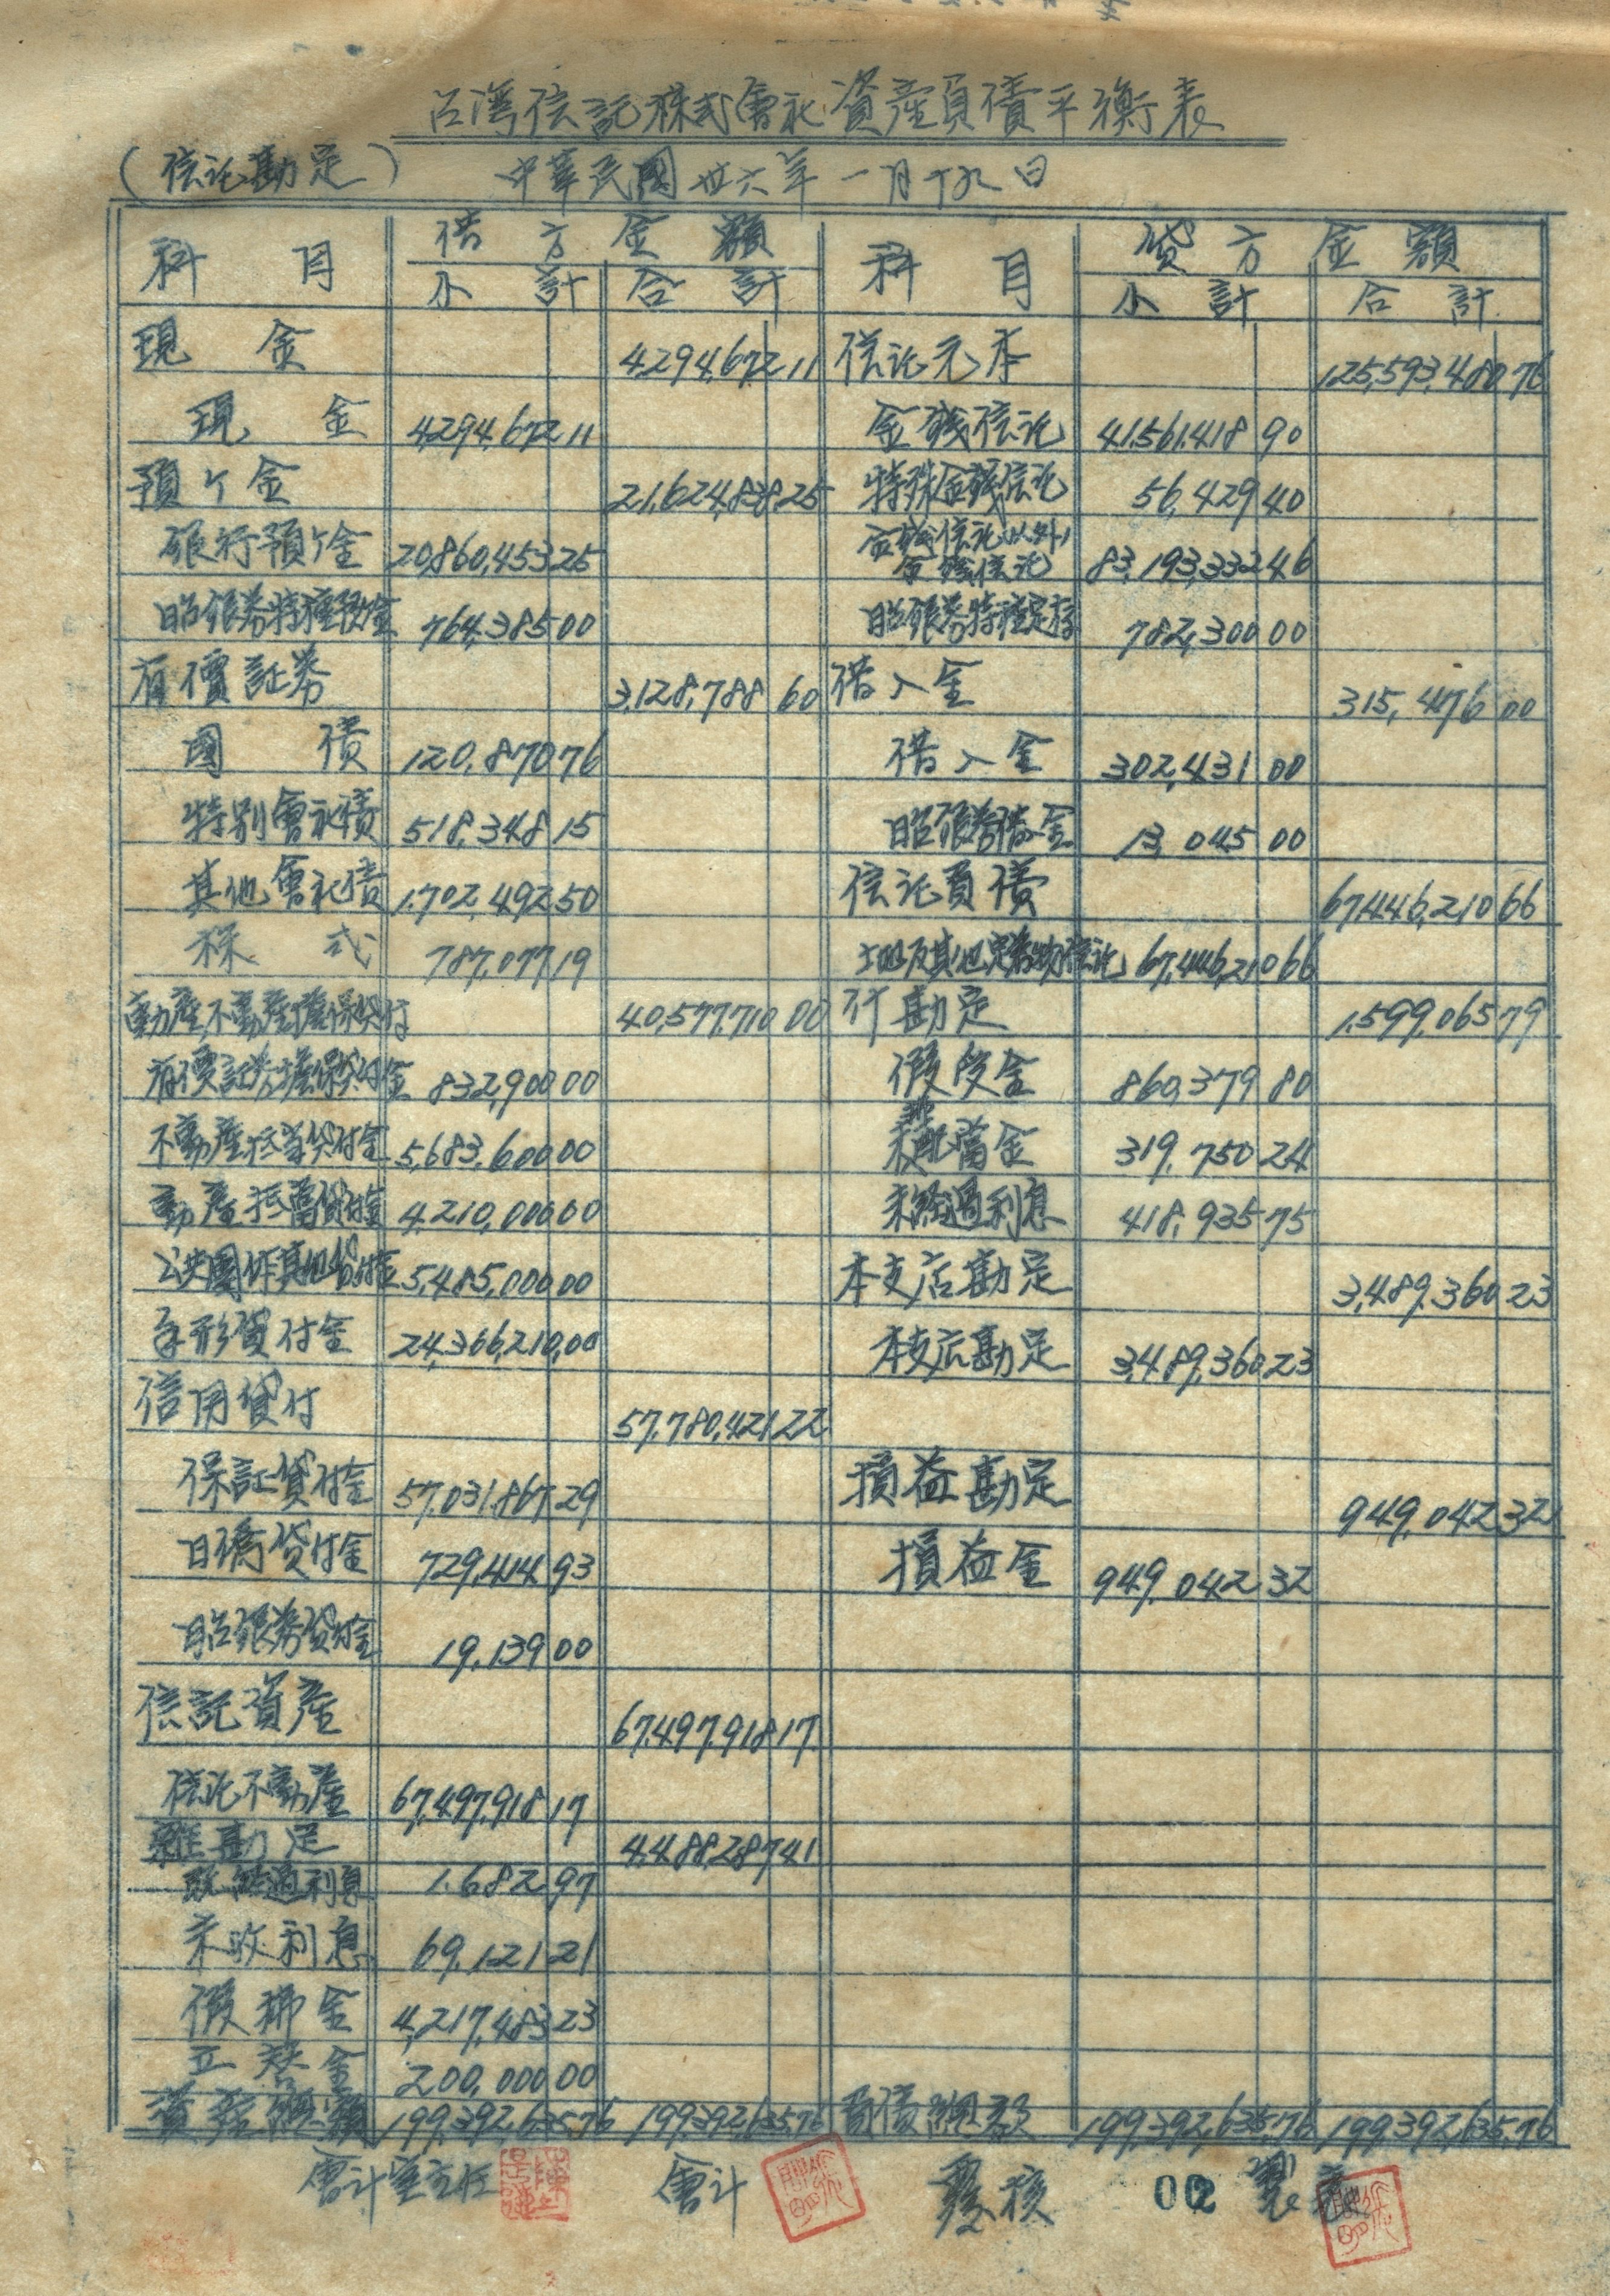 台湾信託株式會社資產負債平衡表
(信託勘定) 中華民國卅六年一月十九日
科目 借方金額 科目 貸方金額
小計 合計 小計 合計
現金 4,294,672 11 信託元本 125,593,480 76
現金 4,294,672 11 金銭信託 41,561,418 90
預ヶ金 21,624,838 25 特殊金銭信託 56,429 40
銀行預ヶ金 20,860,453 25 金銭信託以外ノ金銭信託 83,193,332 46
日台銀券特種預金 764,385 00 日台銀券特種定存 782,300 00
有價証券 3,128,788 60 借入金 315,476 00
國債 120,870 76 借入金 302,431 00
特别會社債 518,348 15 日台銀券借入金 13,045 00
其他會社債 1,702,492 50 信託負債 67,446,210 66
株式 787,077 19 土地及其他定着物信託 67,446,210 66
動產,不動產擔保貸付 40,577,710 00 什勘定 1,599,065 79
有價証券擔保貸付金 832,900 00 假受金 860,379 80
不動產抵當貸付金 5,683,600 00 未配當金 319,750 24
動產抵當貸付金 4,210,000 00 未経過利息 418,935 75
公共團体其他貸付金 5,485,000 00 本支店勘定 3,489,360 23
手形貸付金 24,366,210,00 本支店勘定 3,489,360 23
信用貸付 57,780,421 22
保証貸付金 57,031,867 29 損益勘定 949,042 32
日僑貸付金 729,414 93 損益金 949,042 32
日台銀券貸付金 19,139 00
信託資産 67,497,918 17
信託不動產 67,497,918 17
雜勘定 4,488,287 41
既経過利息 1,682 97
未收利息 69,121 21
假拂金 4,217,483 23
立替金 200,000 00
資產總額 199,392,635.76 199,392,635.76 負債總額 199,392,635.76 199,392,635.76
會計室主任 會計 覆核 002 製表